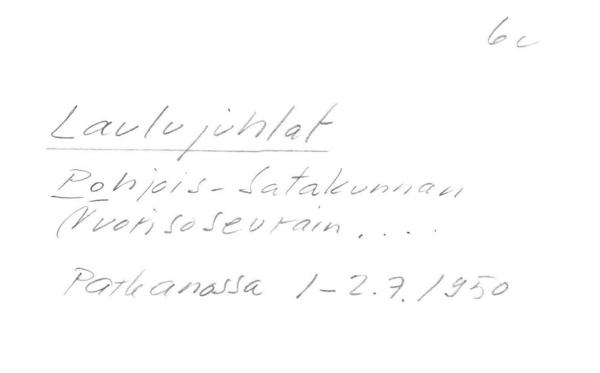 6c
Laulujuhlat
Pohjois-Satakunnan
Nuorisoseurain....
Parkanossa 1-2.7.1950